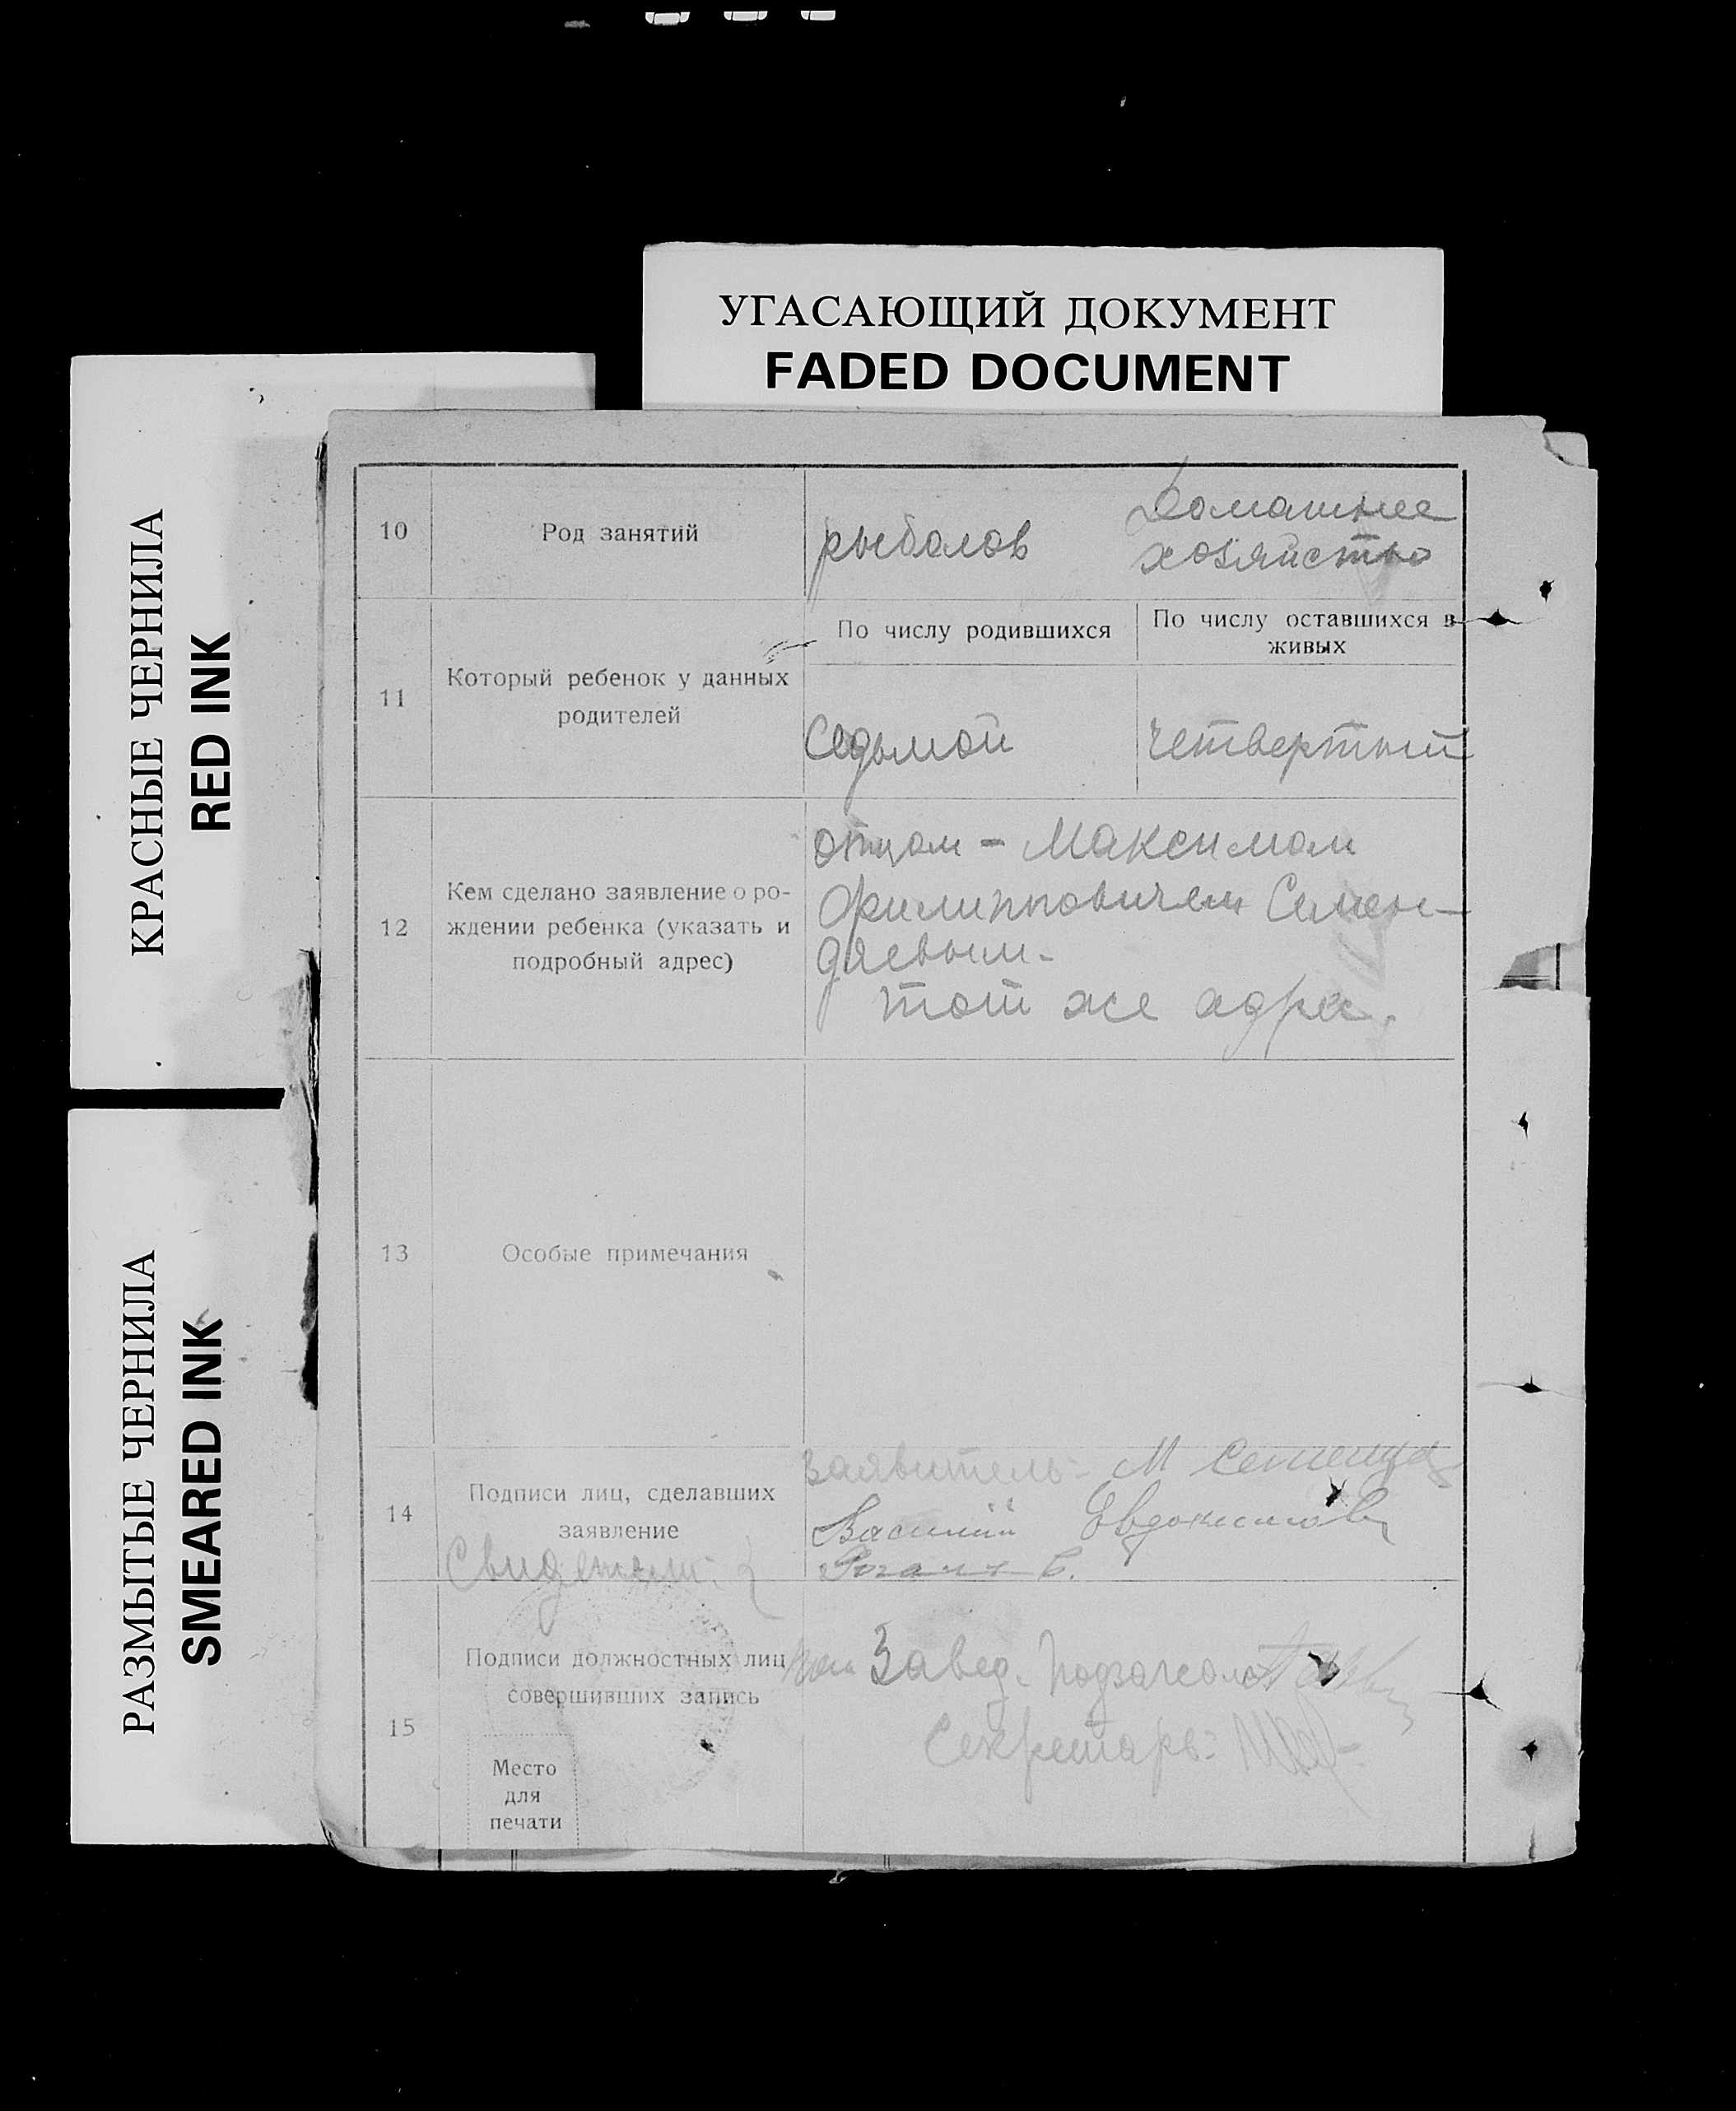 УГАСАЮЩИЙ ДОКУМЕНТ
FADED DOCUMENT
КРАСНЫЕ ЧЕРНИЛА
RED INK
РАЗМЫТЫЕ ЧЕРНИЛА
SMEARED INK
10 Род занятий рыболов Домашнее
хозяйство
11 Который ребенок у данных
родителей
По числу родившихся
По числу оставшихся в
живых
Седьмой
четвертый
12 Кем сделано заявление о ро-
ждении ребенка (указать и
подробный адрес)
отцом - Максимом
Филипповичем Семен-
дяевым -
тот же адрес.
13 Особые примечания
14 Подписи лиц, сделавших
заявление
Свидетели:
заявитель - М
Василий Евдокимов
15 Подписи должностных лиц
совершивших запись
Завед.
Секретарь:
Место
для
печати